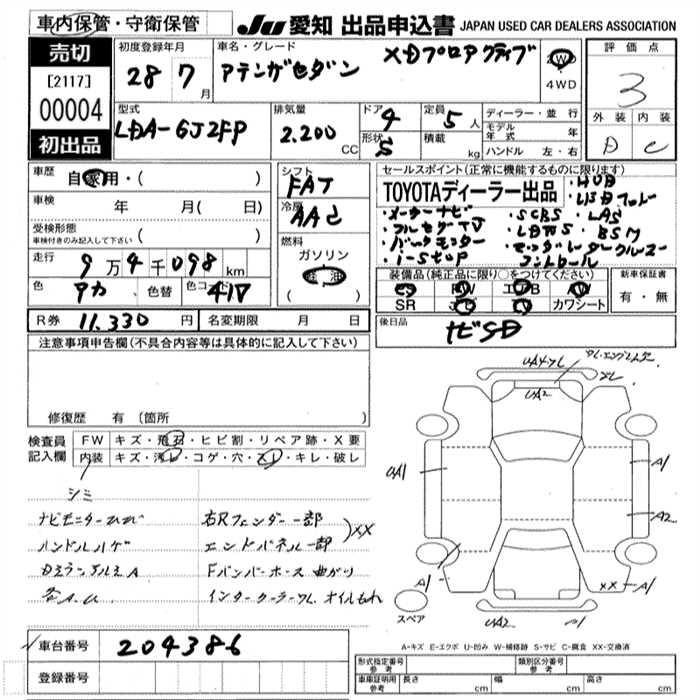 車内保管・守衛保管
JU 愛知 出品申込書 JAPAN USED CAR DEALERS ASSOCIATION
売切
[2117]
00004
初出品
初度登録年月
28年 7月
車名・グレード
アテンザセダン
XDプロアクティブ
2WD
4WD
評価点
3
外装 内装
D C
型式
LDA-GJ2FP
排気量
2.200 CC
ドア
4
形状
S
定員
5人
積載
kg
ディーラー・並行
モデル年式 年
ハンドル 左・右
車歴
自家用・( )
車検 年 月( 日)
受検形態
車検付きのみ記入して下さい ( )
走行
9万4千098km
色
アカ
色替
色コード
41V
シフト
FAT
冷房
AAC
燃料
ガソリン
( )
セールスポイント(正常に機能するものに限ります)
TOYOTAディーラー出品
・HUD
・オーナーナビ
・SCBS
・LAS
・フルセグTV
・BSM
・バックモニター
・i-stop
コントロール
装備品(純正品に限り○をつけてください)
SR
カワシート
新車保証書
有・無
後日品
ナビSD
R券 11,330円
名変期限 月 日
注意事項申告欄(不具合内容等は具体的に記入して下さい)
修復歴 有(箇所 )
検査員記入欄
FW キズ・飛石・ヒビ割・リペア跡・X要
内装 キズ・汚レ・コゲ・穴・スレ・キレ・破レ
シミ
ナビモニターひび
ハンドルハゲ
各A.U
右Rフェンダー一部
エンドパネル一部
XX
Fバンパーホース曲がり
インタークーラーフル オイルもれ
UA2
UA1
A1
A2
A1
XX A1
UA2
スペア
A-キズ E-エクボ U-凹み W-補修跡 S-サビ C-腐食 XX-交換済
車台番号 204386
登録番号
形式指定番号 参考
類別区分番号 参考
車庫証明用 参考 長さ cm 幅 cm 高さ cm